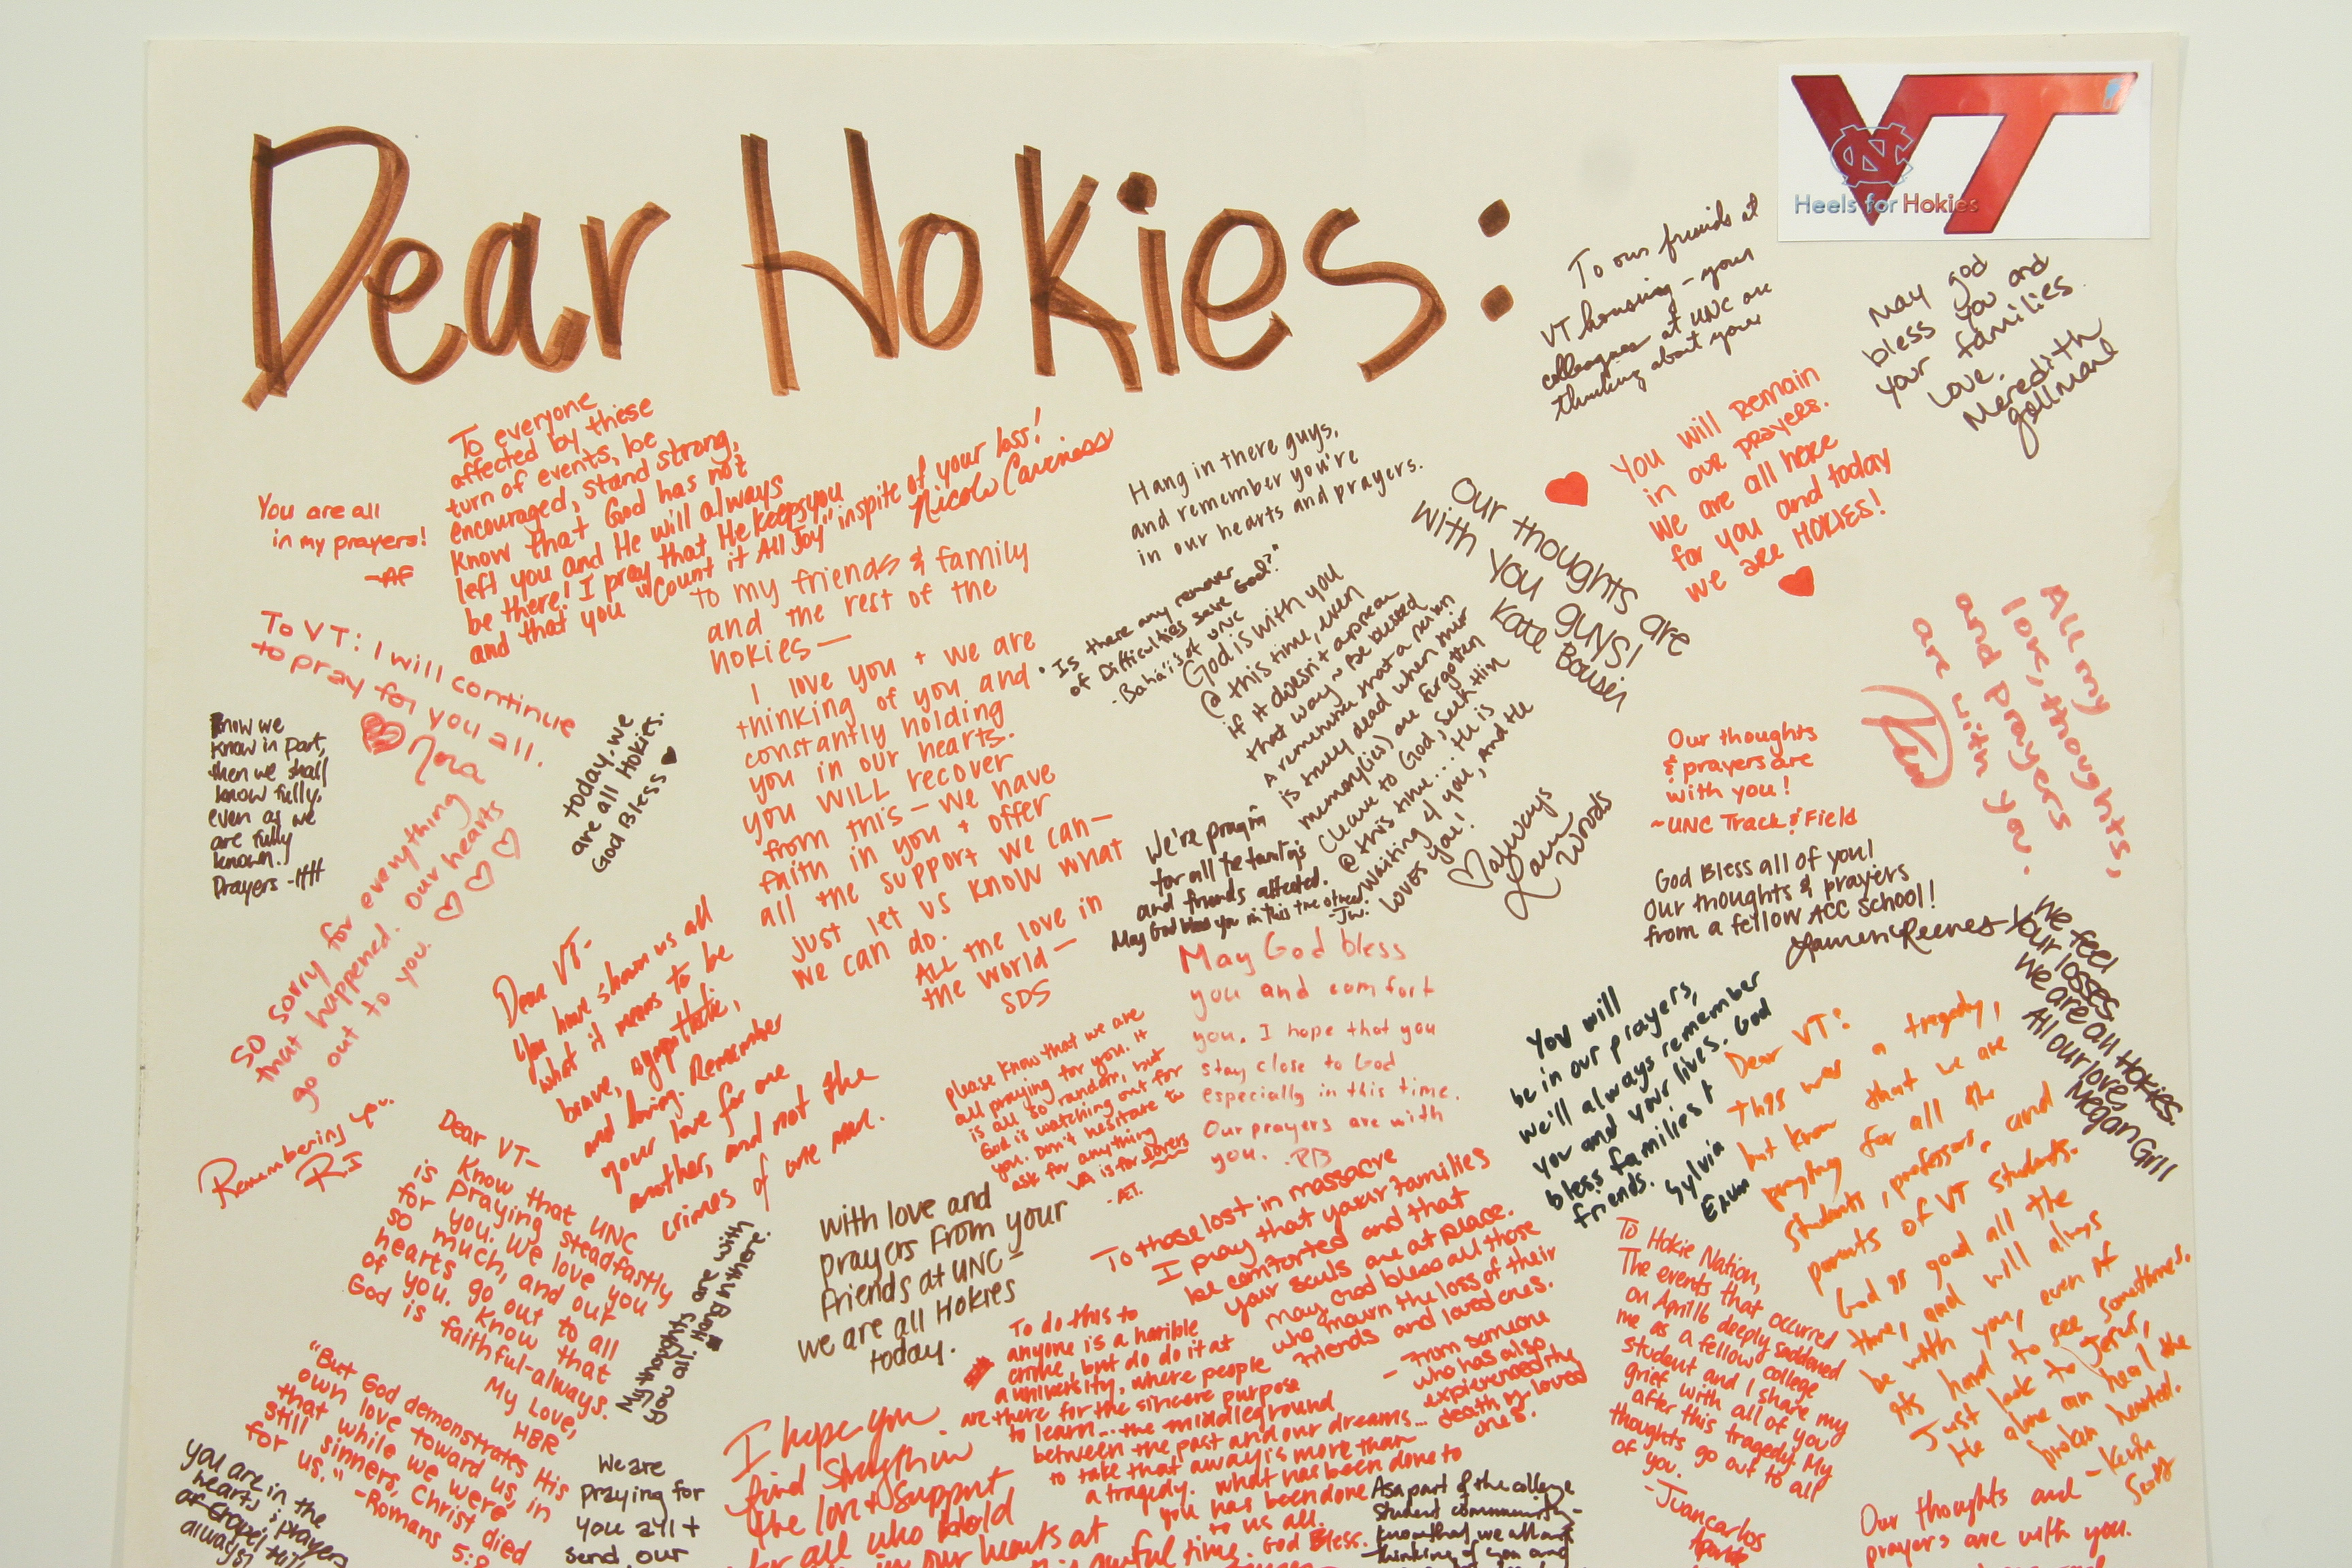 Dear Hokies:
VT
NC
Heels for Hokies
To our friends at
VT housing - your
colleagues at UNC are
thinking about you
May god
bless you and
your families
Love,
Meredith
gollmar
To everyone
affected by these
turn of events, be
encouraged, stand strong,
know that God has not
left you and He will always
be there! I pray that He keeps you
and that you "Count it All Joy" inspite of your loss!
Nicole Caviness
You are all
in my prayers!
-AF
Hang in there guys,
and remember you're
in our hearts and prayers.
Our thoughts are
with you guys!
Kate Bousin
You will Remain
in our prayers.
We are all here
for you and today
we are HOKIES!
To VT: I will continue
to pray for you all.
Nora
to my friends & family
and the rest of the
hokies—
I love you + we are
thinking of you and
constantly holding
you in our hearts.
you WILL recover
from this - we have
faith in you + offer
all the support we can—
just let us know what
we can do.
ALL the love in
the world—
SDS
"Is there any remover
of Difficulties save God?"
-Bahá'ís of UNC
God is with you
@ this time, even
if it doesn't appear
that way ~ Be blessed
A remember that a person
is truly dead when their
memory(ies) are forgotten
Cleave to God, seek Him
@ this time... He is
waiting 4 you, and He
loves you!
always
Lauren
Woods
All my
love, thoughts,
and prayers
are with you.
Know we
know in part,
then we shall
know fully,
even as we
are fully
known.
Prayers -HH
today, we
are all Hokies.
God Bless
Our thoughts
& prayers are
with you!
~UNC Track & Field
We're prayin
for all the familys
and friends affected.
May God bless you in this time
-J.W.
God Bless all of you!
Our thoughts & prayers
from a fellow ACC School!
Lauren Reeves
so sorry for everything
that happened. Our hearts
go out to you.
Dear VT-
You have shown us all
what it means to be
brave, sympathetic,
and loving. Remember
your love for one
another, and not the
crimes of one man.
May God bless
you and comfort
you. I hope that you
stay close to God
especially in this time.
Our prayers are with
you. -RB
We feel
your losses.
We are all HOKIES.
All our love,
Megan Grill
please know that we are
all praying for you. it
is all so random, but
God is watching out for
you. Don't hesitate to
ask for anything
VA is for lovers
-AET.
You will
be in our prayers,
we'll always remember
you and your lives. God
bless families &
friends.
Sylvia
Dear VT:
This was a tragedy,
but know that we are
praying for all the
students, professors, and
parents of VT students.
God is good all the
time, and will always
be with you, even if
its hard to see sometimes.
Just look to Jesus,
He alone can heal the
broken hearted.
-Kevin
Scott
Remembering you.
RJ
Dear VT-
Know that UNC
is praying steadfastly
for you. We love you
so much, and our
hearts go out to all
of you. Know that
God is faithful-always.
My Love,
HBR
My thoughts are with
you all. Stay strong
Hang in there.
with love and
prayers from your
friends at UNC-
we are all Hokies
today.
To those lost in massacre
I pray that your families
be comforted and that
your souls are at peace.
May God bless all those
who mourn the loss of their
friends and loved ones.
- From someone
who has also
expierenced the
death of loved
ones.
To Hokie Nation,
The events that occurred
on April 16 deeply saddened
me as a fellow college
student and I share my
grief with all of you
after this tragedy. My
thoughts go out to all
of you.
-Juancarlos
To do this to
anyone is a horrible
crime, but do do it at
a university, where people
are there for the sincere purpose
to learn... the middleground
between the past and our dreams...
to take that away is more than
a tragedy. What has been done to
you has been done
to us all.
God Bless.
"But God demonstrates His
own love toward us, in
that while we were
still sinners, Christ died
for us."
-Romans 5:8
I hope you
find strength in
the love + support
for all who hold
in our hearts at
awful time.
you are in the
hearts & prayers
of Chapel Hill
always!
We are
praying for
you all +
send our
As a part of the college
student community-
know that we all are
thinking of you and
Our thoughts and
prayers are with you.